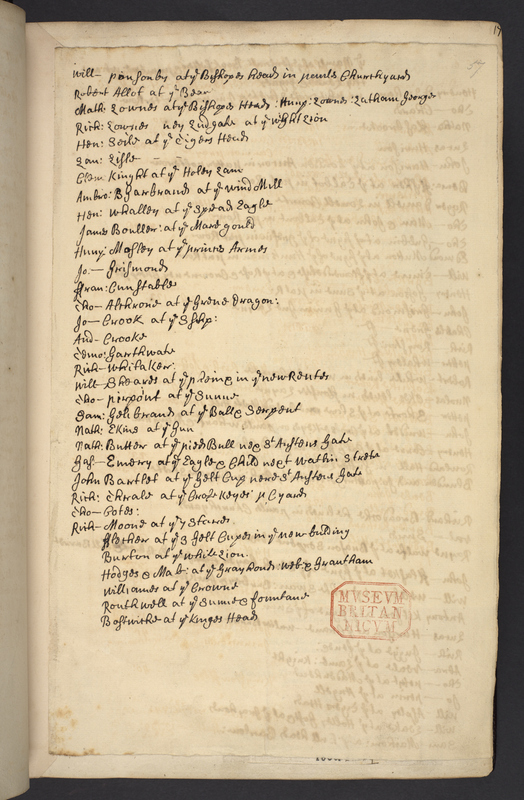 17
57
Will— Ponsonby at yᵉ Bishopes head in pauls Churchyard
Robert Allot at yᵉ Bear
Math: Lownes at yᵉ Bishopes Head: Hump: Lownes: Latham George
Rich: Lownes nex Ludgate at yᵉ whight Lion
Hen: Seile at yᵉ Tigers Head
Lau: Lisle — —
Clem: Knyght at yᵉ Holey Lam
Ambro: Garbrand at yᵉ wind Mill
Hen: Whalley at yᵉ Spread Eagle
James Bouller: at yᵉ Mare gould
Hump: Mosley at yᵉ princes Armes
Jo:— Grismond
Fran: Cunstable
Tho— Althrone at yᵉ Grene Dragon:
Jo— Crook at yᵉ Ship:
And— Crooke
Timo: Garthwate
Rich— Whitaker:
Will— Sheares at yᵉ in yᵉ new Rentes
Tho— pierpoint at yᵉ Sunne
Sam: Gelibrand at yᵉ Ball & Serpent
Nath: Ekins at yᵉ Gun
Nath: Butter at yᵉ pied Bull nex Sᵗ Anstens Gate
Gas— Emery at yᵉ Eagle & Child next Watlin Strete
John Bartlet at yᵉ Gelt Cup nere Sᵗ Anstens Gate
Rich: Thrale at yᵉ Cross Keyes p Cyard
Tho— Cotes:
Rich— Moone at yᵉ 7 Stares
Flether at yᵉ 3 Gelt Cupes in yᵉ new bulding
Burton at yᵉ While Lion
Hodges & Mab: at yᵉ Gray hond: web & Grantham
Williames at yᵉ Crowne
Routhwell at yᵉ Sunne & fountane
Bostwicke at yᵉ Kinges Head
MVSEVM
BRITAN
NICVM